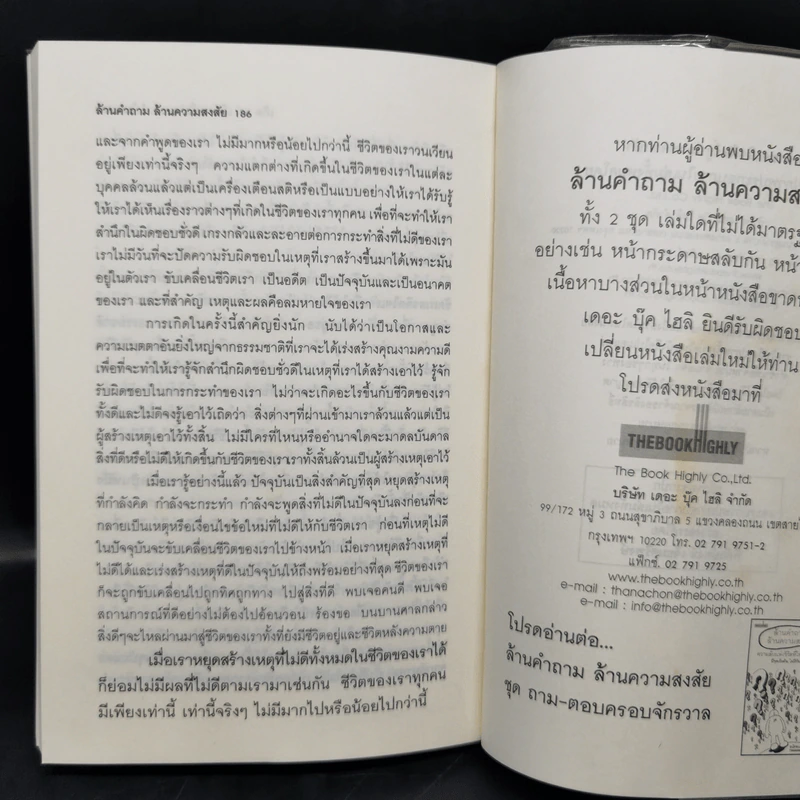 ล้านคำถาม ล้านความสงสัย 186
และจากคำพูดของเรา ไม่มีมากหรือน้อยไปกว่านี้ ชีวิตของเราวนเวียน
อยู่เพียงเท่านี้จริงๆ ความแตกต่างที่เกิดขึ้นในชีวิตของเราในแต่ละ
บุคคลล้วนแล้วแต่เป็นเครื่องเตือนสติหรือเป็นแบบอย่างให้เราได้รับรู้
ให้เราได้เห็นเรื่องราวต่างๆที่เกิดในชีวิตของเราทุกคน เพื่อที่จะทำให้เรา
สำนึกในผิดชอบชั่วดี เกรงกลัวและละอายต่อการกระทำสิ่งที่ไม่ดีของเรา
เราไม่มีวันที่จะปัดความรับผิดชอบในเหตุที่เราสร้างขึ้นมาได้เพราะมัน
อยู่ในตัวเรา ขับเคลื่อนชีวิตเรา เป็นอดีต เป็นปัจจุบันและเป็นอนาคต
ของเรา และที่สำคัญ เหตุและผลคือลมหายใจของเรา
การเกิดในครั้งนี้สำคัญยิ่งนัก นับได้ว่าเป็นโอกาสและ
ความเมตตาอันยิ่งใหญ่จากธรรมชาติที่เราจะได้เร่งสร้างคุณงามความดี
เพื่อที่จะทำให้เรารู้จักสำนึกผิดชอบชั่วดีในเหตุที่เราได้สร้างเอาไว้ รู้จัก
รับผิดชอบในการกระทำของเรา ไม่ว่าจะเกิดอะไรขึ้นกับชีวิตของเรา
ทั้งดีและไม่ดีจงรู้เอาไว้เถิดว่า สิ่งต่างๆที่ผ่านเข้ามาเราล้วนแล้วแต่เป็น
ผู้สร้างเหตุเอาไว้ทั้งสิ้น ไม่มีใครที่ไหนหรืออำนาจใดจะมาดลบันดาล
สิ่งที่ดีหรือไม่ดีให้เกิดขึ้นกับชีวิตของเราเราทั้งสิ้นล้วนเป็นผู้สร้างเหตุเอาไว้
เมื่อเรารู้อย่างนี้แล้ว ปัจจุบันเป็นสิ่งสำคัญที่สุด หยุดสร้างเหตุ
ที่กำลังคิด กำลังจะกระทำ กำลังจะพูดสิ่งที่ไม่ดีในปัจจุบันลงก่อนที่จะ
กลายเป็นเหตุหรือเงื่อนไขข้อใหม่ที่ไม่ดีให้กับชีวิตเรา ก่อนที่เหตุไม่ดี
ในปัจจุบันจะขับเคลื่อนชีวิตของเราไปข้างหน้า เมื่อเราหยุดสร้างเหตุที่
ไม่ดีได้และเร่งสร้างเหตุที่ดีในปัจจุบันให้ถึงพร้อมอย่างที่สุด ชีวิตของเรา
ก็จะถูกขับเคลื่อนไปถูกทิศถูกทาง ไปสู่สิ่งที่ดี พบเจอคนดี พบเจอ
สถานการณ์ที่ดีอย่างไม่ต้องไปอ้อนวอน ร้องขอ บนบานศาลกล่าว
สิ่งดีๆจะไหลผ่านมาสู่ชีวิตของเราทั้งที่ยังมีชีวิตอยู่และชีวิตหลังความตาย
เมื่อเราหยุดสร้างเหตุที่ไม่ดีทั้งหมดในชีวิตของเราได้
ก็ย่อมไม่มีผลที่ไม่ดีตามเรามาเช่นกัน ชีวิตของเราทุกคน
มีเพียงเท่านี้ เท่านี้จริงๆ ไม่มีมากไปหรือน้อยไปกว่านี้
หากท่านผู้อ่านพบหนังสือ
ล้านคำถาม ล้านความส
ทั้ง 2 ชุด เล่มใดที่ไม่ได้มาตร
อย่างเช่น หน้ากระดาษสลับกัน หน้า
เนื้อหาบางส่วนในหน้าหนังสือขาด
เดอะ บุ๊ค ไฮลิ ยินดีรับผิดชอบ
เปลี่ยนหนังสือเล่มใหม่ให้ท่าน
โปรดส่งหนังสือมาที่
THEBOOKHIGHLY
The Book Highly Co.,Ltd.
บริษัท เดอะ บุ๊ค ไฮลิ จำกัด
99/172 หมู่ 3 ถนนสุขาภิบาล 5 แขวงคลองถนน เขตสายไ
กรุงเทพฯ 10220 โทร. 02 791 9751-2
แฟ็กซ์. 02 791 9725
www.thebookhighly.co.th
e-mail : thanachon@thebookhighly.co.th
e-mail : info@thebookhighly.co.th
โปรดอ่านต่อ...
ล้านคำถาม ล้านความสงสัย
ชุด ถาม-ตอบครอบจักรวาล